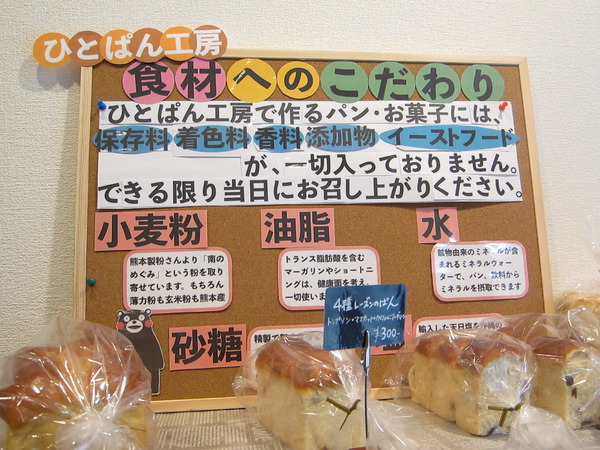 ひとぱん工房
食材へのこだわり
ひとぱん工房で作るパン・お菓子には、
保存料 着色料 香料 添加物 イーストフード
が、一切入っておりません。
できる限り当日にお召し上がりください。
小麦粉
熊本製粉さんより「南の
めぐみ」という粉を取り
寄せています。もちろん
薄力粉も玄米粉も熊本産
油脂
トランス脂肪酸を含む
マーガリンやショートニ
ングは、健康面を考え、
一切使いま
水
鉱物由来のミネラルが含
まれるミネラルウォー
ターで、パン、飲料から
ミネラルを摂取できます
砂糖
精製で
輸入した天日塩を沖縄の
4種レーズンのぱん
¥300-